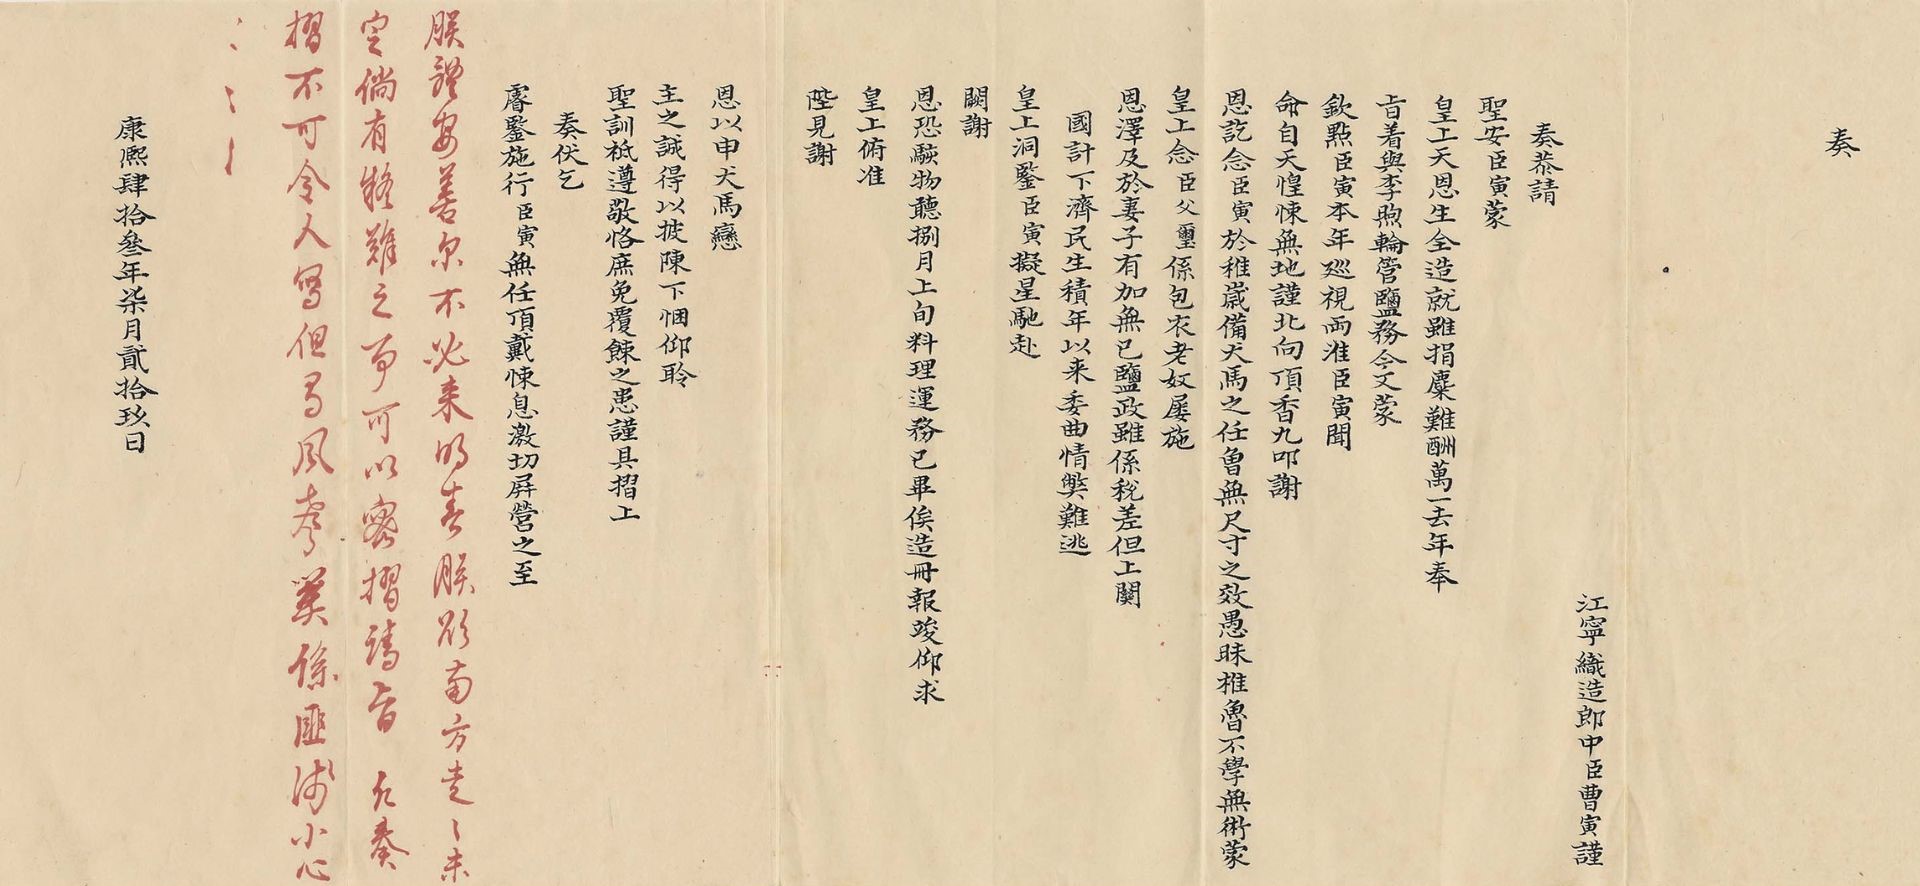 奏
江寧織造郎中臣曹寅謹
奏恭請
聖安臣寅蒙
皇上天恩生全造就雖捐麋難酬萬一去年奉
旨着與李煦輪管鹽務今又蒙
欽點臣寅本年廵視兩淮臣寅聞
命自天惶悚無地謹北向頂香九叩謝
恩訖念臣寅於稚歲備犬馬之任曾無尺寸之效愚昧椎魯不學無術蒙
皇上念臣父璽係包衣老奴屢施
恩澤及於妻子有加無已鹽政雖係稅差但上關
國計下濟民生積年以來委曲情獘難逃
皇上洞鑒臣寅擬星馳赴
闕謝
恩恐駭物聽捌月上旬料理運務已畢俟造冊報竣仰求
皇上俯准
陛見謝
恩以申犬馬戀
主之誠得以披陳下悃仰聆
聖訓祗遵敬恪庶免覆餗之患謹具摺上
奏伏乞
睿鑒施行臣寅無任頂戴悚息激切屏營之至
朕體安善尔不必來明春朕欲南方走〻未
定倘有疑難之事可以密摺請旨 凢奏
摺不可令人寫但有風聲關係匪淺小心
〻〻〻〻
康熙肆拾叄年柒月貳拾玖日